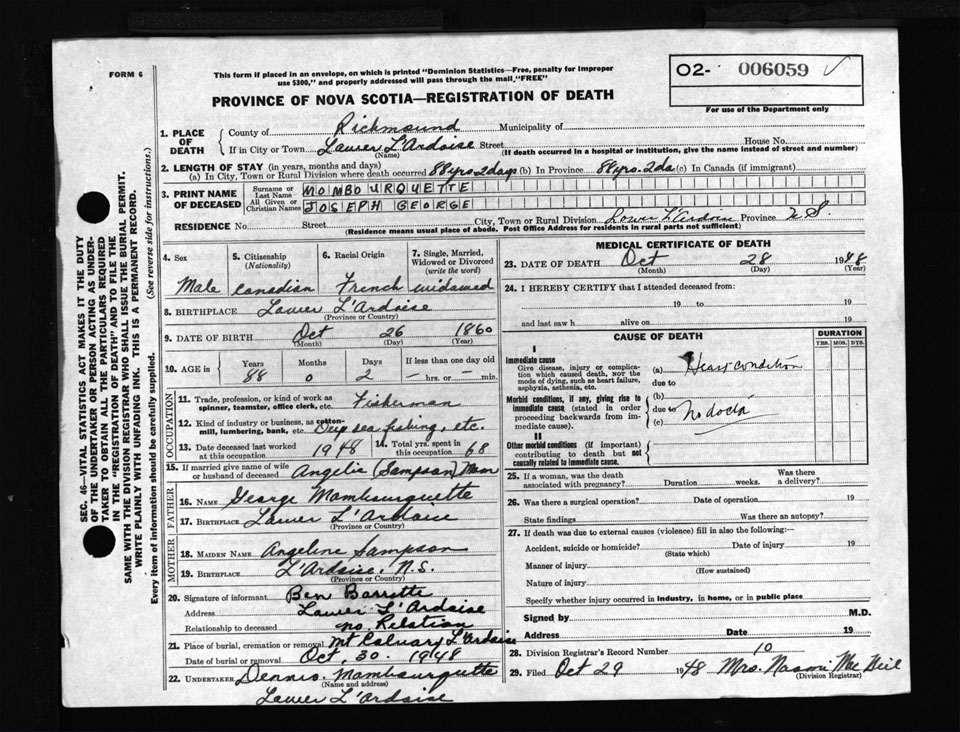 FORM 6
This form if placed in an envelope, on which is printed "Dominion Statistics—Free, penalty for improper
use $300," and properly addressed will pass through the mail, "FREE"
PROVINCE OF NOVA SCOTIA—REGISTRATION OF DEATH
O2- 006059 ✓
For use of the Department only
SEC. 46—VITAL STATISTICS ACT MAKES IT THE DUTY
OF THE UNDERTAKER OR PERSON ACTING AS UNDER-
TAKER TO OBTAIN ALL THE PARTICULARS REQUIRED
IN THE "REGISTRATION OF DEATH" AND TO FILE THE
SAME WITH THE DIVISION REGISTRAR WHO SHALL ISSUE THE BURIAL PERMIT.
WRITE PLAINLY WITH UNFADING INK. THIS IS A PERMANENT RECORD.
Every item of information should be carefully supplied. (See reverse side for instructions.)
1. PLACE OF DEATH
County of Richmound Municipality of
If in City or Town Lawer L'Ardoise Street House No.
(Name) (If death occurred in a hospital or institution, give the name instead of street and number)
2. LENGTH OF STAY (in years, months and days)
(a) In City, Town or Rural Division where death occurred 88 yrs. 2 days (b) In Province 88 yrs. 2 da (c) In Canada (if immigrant)
3. PRINT NAME OF DECEASED
Surname or Last Name MOMBOURQUETTE
All Given or Christian Names JOSEPH GEORGE
RESIDENCE No. Street City, Town or Rural Division Lower L'Ardoise Province N.S.
(Residence means usual place of abode. Post Office Address for residents in rural parts not sufficient)
4. Sex
5. Citizenship (Nationality)
6. Racial Origin
7. Single, Married, Widowed or Divorced (write the word)
Male Canadian French widawed
8. BIRTHPLACE Lawer L'Ardoise
(Province or Country)
9. DATE OF BIRTH Oct 26 1860
(Month) (Day) (Year)
10. AGE in Years Months Days If less than one day old
88 0 2 — hrs. or — min.
OCCUPATION
11. Trade, profession, or kind of work as
spinner, teamster, office clerk, etc. Fisherman
12. Kind of industry or business, as cotton-
mill, lumbering, bank, etc. Deep sea fishing, etc.
13. Date deceased last worked at this occupation 1948
14. Total yrs. spent in this occupation 68
15. If married give name of wife
or husband of deceased Angelie (Sampson) Mom
FATHER
16. NAME George Mambourquette
17. BIRTHPLACE Lawer L'Ardoise
(Province or Country)
MOTHER
18. MAIDEN NAME Angeline Sampson
19. BIRTHPLACE L'Ardoise, N.S.
(Province or Country)
20. Signature of informant Ben Barrette
Address Lawer L'Ardoise
Relationship to deceased no Relation
21. Place of burial, cremation or removal Mt Calvary L'Ardoise
Date of burial or removal Oct, 30. 1948
22. UNDERTAKER Dennis. Mambourquette
(Name and address)
Lawer L'ardoise
MEDICAL CERTIFICATE OF DEATH
23. DATE OF DEATH Oct 28 1948
(Month) (Day) (Year)
24. I HEREBY CERTIFY that I attended deceased from:
19 to 19
and last saw h alive on 19
CAUSE OF DEATH
DURATION
YRS. MOS. DYS.
I
Immediate cause
Give disease, injury or complica-
tion which caused death, NOT the
mode of dying, such as heart failure,
asphyxia, asthenia, etc.
(a) Heart condition
due to
Morbid conditions, if any, giving rise to
immediate cause (stated in order
proceeding backwards from im-
mediate cause).
(b)
due to no doctor
(c)
II
Other morbid conditions (if important)
contributing to death but not
causally related to immediate cause.
25. If a woman, was the death
associated with pregnancy? Duration weeks. Was there a delivery?
26. Was there a surgical operation? Date of operation 19
State findings Was there an autopsy?
27. If death was due to external causes (violence) fill in also the following:—
Accident, suicide or homicide? Date of injury 19
(State which)
Manner of injury
(How sustained)
Nature of injury
Specify whether injury occurred in industry, in home, or in public place
Signed by M.D.
Address Date 19
28. Division Registrar's Record Number 10
29. Filed Oct 29 1948 Mrs. Naomi MacNeil
(Division Registrar)